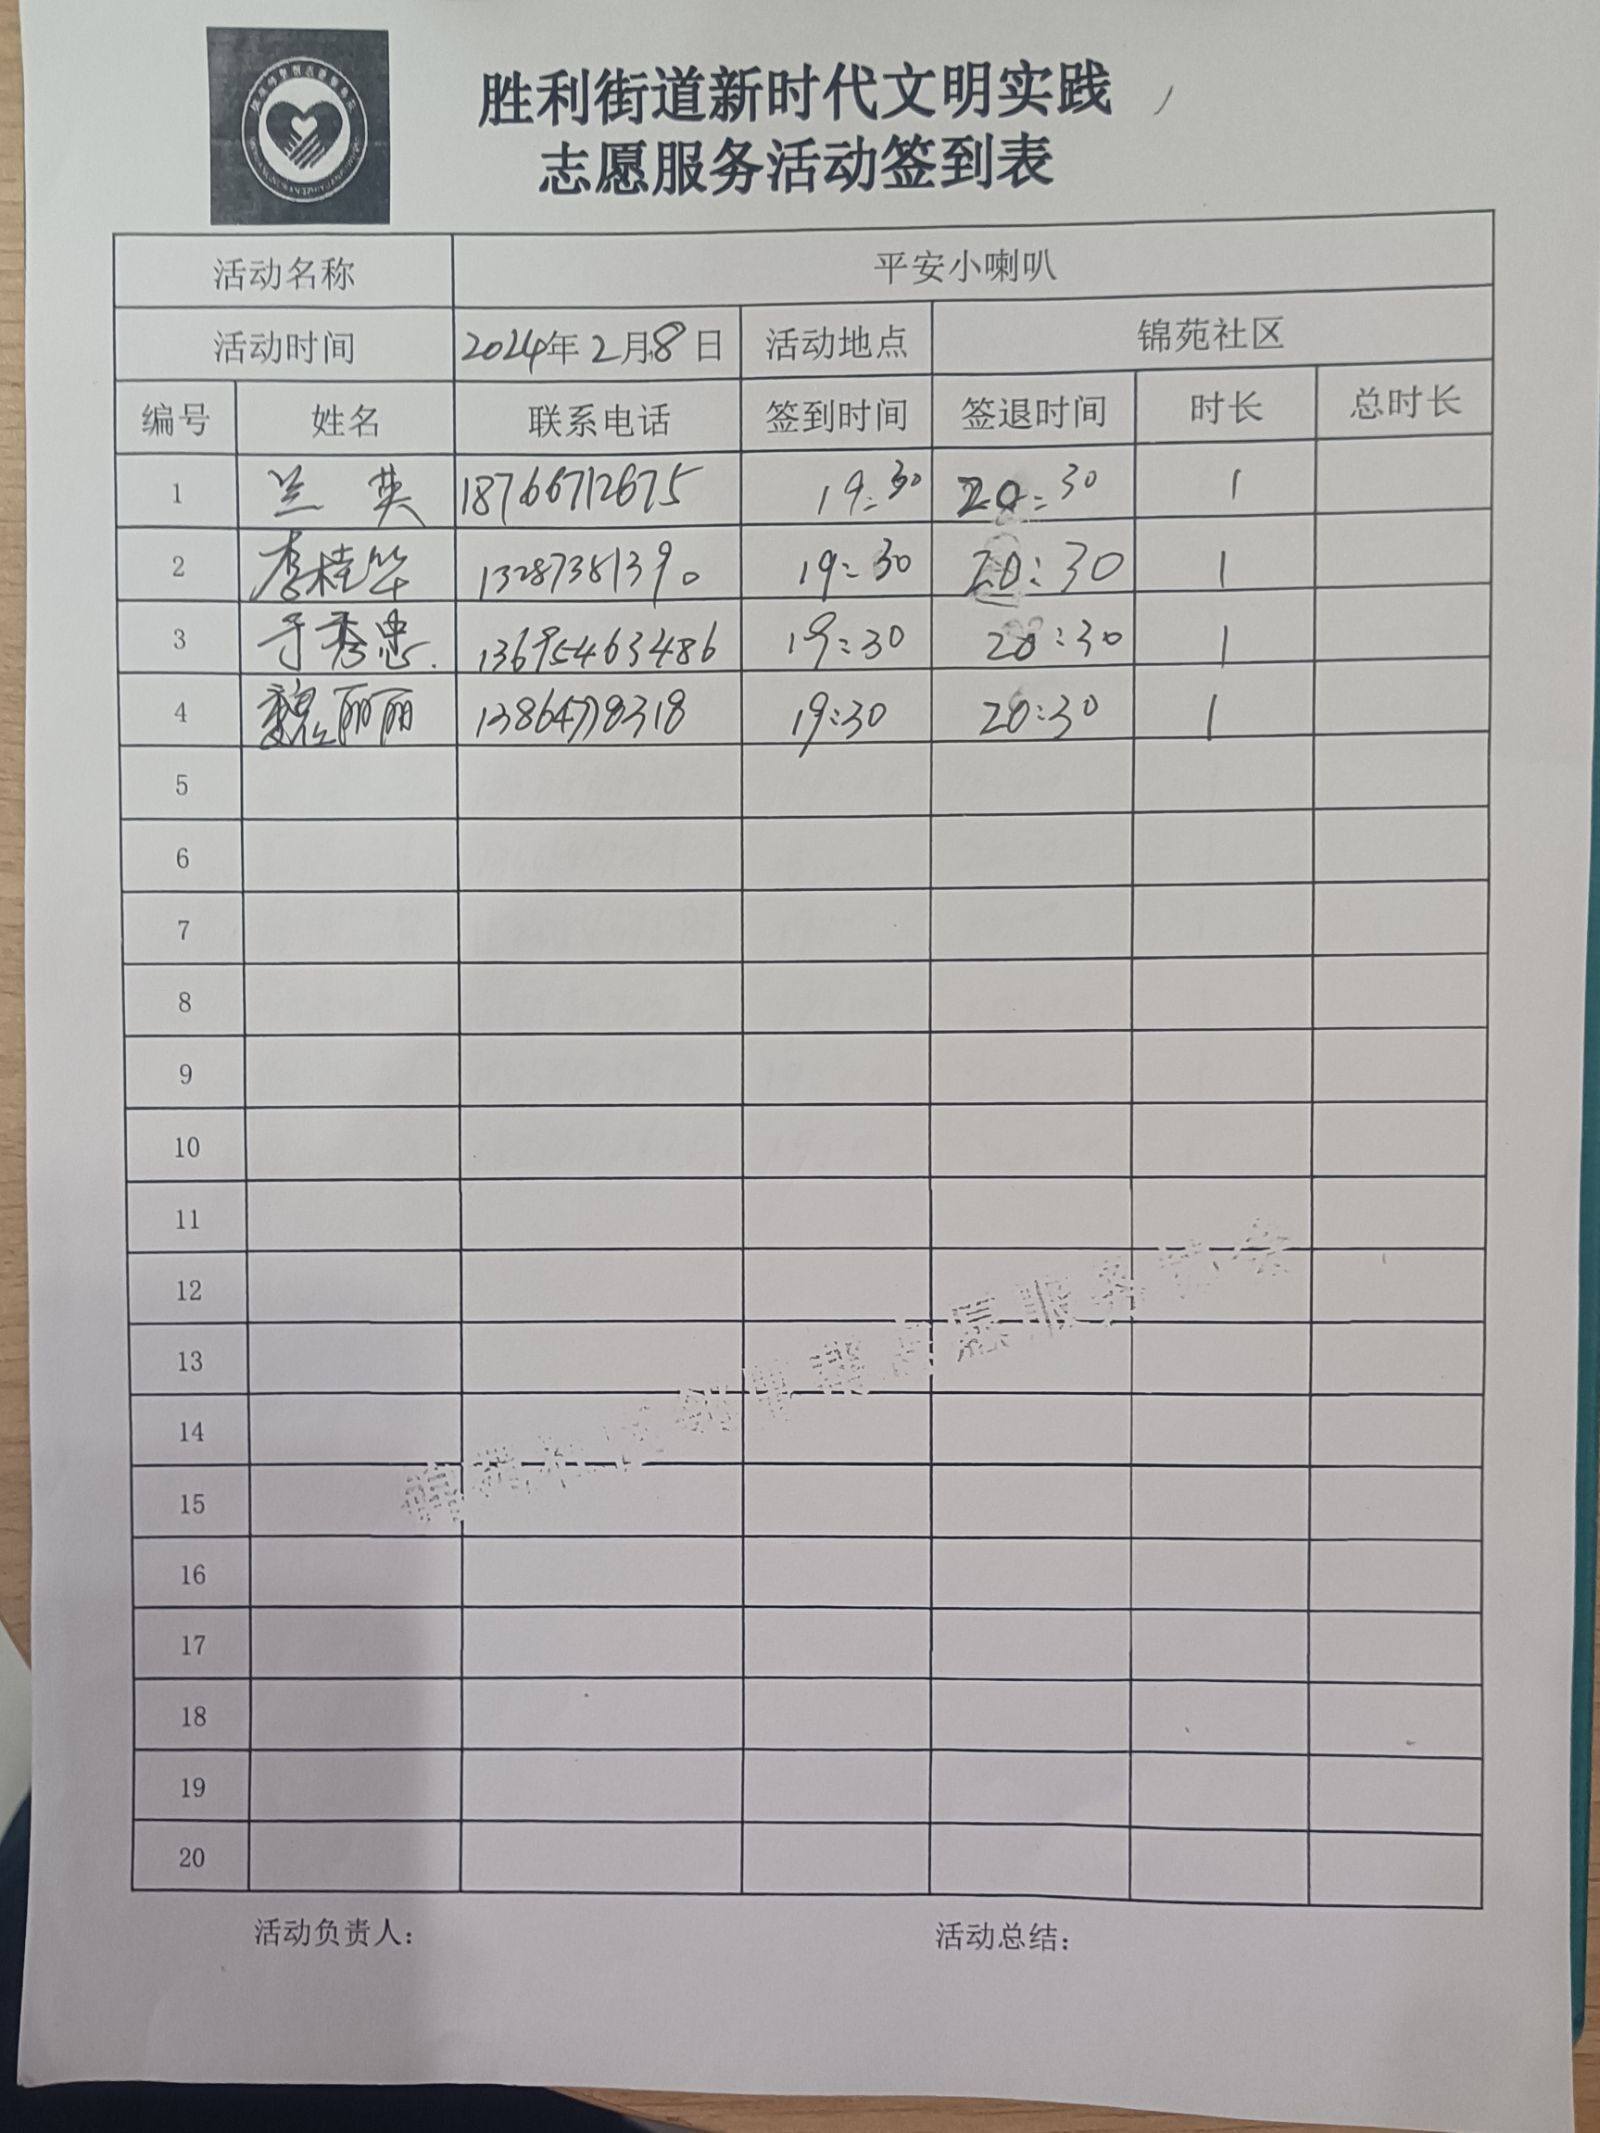 胜利街道新时代文明实践
志愿服务活动签到表
活动名称 平安小喇叭
活动时间 2024年2月8日 活动地点 锦苑社区
编号 姓名 联系电话 签到时间 签退时间 时长 总时长
1 兰英 18766712675 19:30 20:30 1
2 李桂华 13287381390 19:30 20:30 1
3 于秀忠 13695463486 19:30 20:30 1
4 魏丽丽 13864778318 19:30 20:30 1
5
6
7
8
9
10
11
12
13
14
15
16
17
18
19
20
活动负责人： 活动总结：